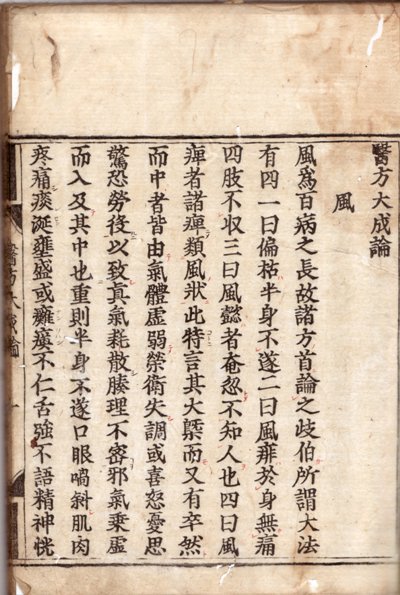 醫方大成論
風
風爲百病之長故諸方首論之歧伯所謂大法
有四一曰偏枯半身不遂二曰風痱於身無痛
四肢不收三曰風懿者奄忽不知人也四曰風
痺者諸痺類風狀此特言其大槩而又有卒然
而中者皆由氣體虛弱榮衛失調或喜怒憂思
驚恐勞役以致眞氣耗散腠理不密邪氣乘虛
而入及其中也重則半身不遂口眼喎斜肌肉
疼痛痰涎壅盛或癱瘓不仁舌強不語精神恍
醫方大成論 一